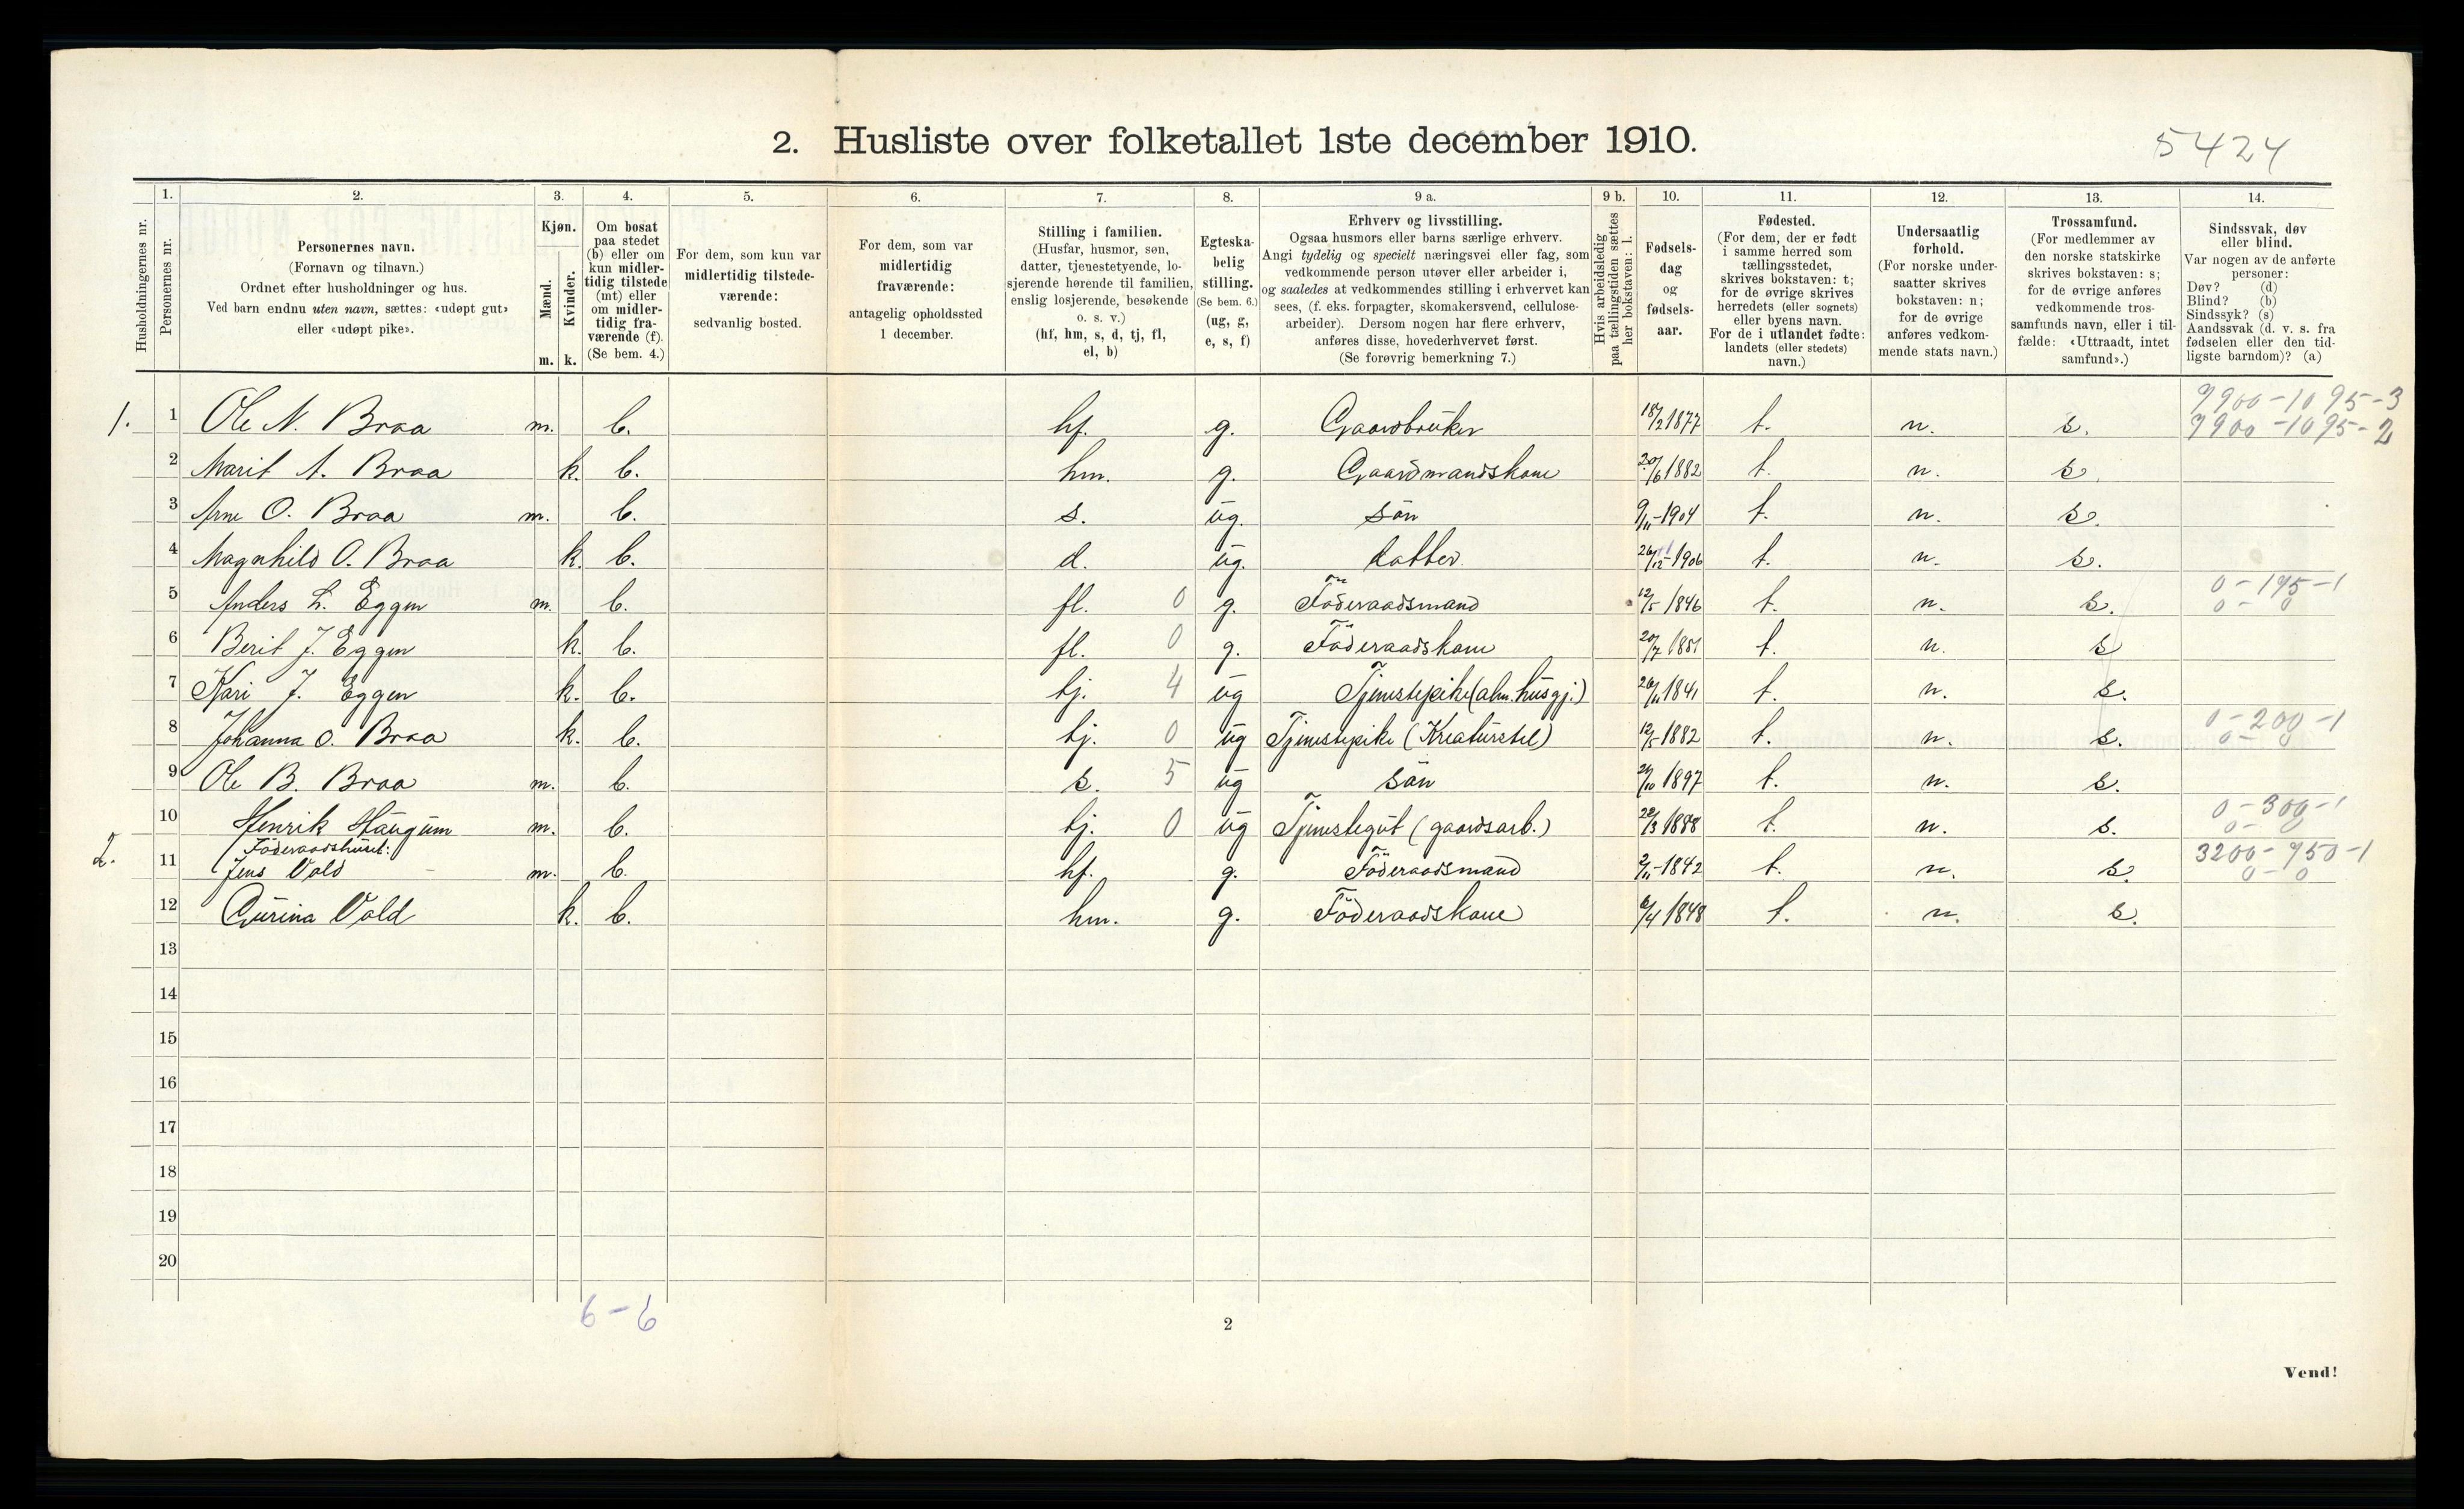 2. Husliste over folketallet 1ste december 1910.
5424
Husholdningernes nr.
1.
Personernes nr.
2.
Personernes navn.
(Fornavn og tilnavn.)
Ordnet efter husholdninger og hus.
Ved barn endnu uten navn, sættes: «udøpt gut»
eller «udøpt pike».
3.
Kjøn.
Mænd.
Kvinder.
m. k.
4.
Om bosat
paa stedet
(b) eller om
kun midler-
tidig tilstede
(mt) eller
om midler-
tidig fra-
værende (f).
(Se bem. 4.)
5.
For dem, som kun var
midlertidig tilstede-
værende:
sedvanlig bosted.
6.
For dem, som var
midlertidig
fraværende:
antagelig opholdssted
1 december.
7.
Stilling i familien.
(Husfar, husmor, søn,
datter, tjenestetyende, lo-
sjerende hørende til familien,
enslig losjerende, besøkende
o. s. v.)
(hf, hm, s, d, tj, fl,
el, b)
8.
Egteska-
belig
stilling.
(Se bem. 6.)
(ug, g,
e, s, f)
9 a.
Erhverv og livsstilling.
Ogsaa husmors eller barns særlige erhverv.
Angi tydelig og specielt næringsvei eller fag, som
vedkommende person utøver eller arbeider i,
og saaledes at vedkommendes stilling i erhvervet kan
sees, (f. eks. forpagter, skomakersvend, cellulose-
arbeider). Dersom nogen har flere erhverv,
anføres disse, hovederhvervet først.
(Se forøvrig bemerkning 7.)
9 b.
Hvis arbeidsledig
paa tællingstiden sættes
her bokstaven: l.
10.
Fødsels-
dag
og
fødsels-
aar.
11.
Fødested.
(For dem, der er født
i samme herred som
tællingsstedet,
skrives bokstaven: t;
for de øvrige skrives
herredets (eller sognets)
eller byens navn.
For de i utlandet fødte:
landets (eller stedets)
navn.)
12.
Undersaatlig
forhold.
(For norske under-
saatter skrives
bokstaven: n;
for de øvrige
anføres vedkom-
mende stats navn.)
13.
Trossamfund.
(For medlemmer av
den norske statskirke
skrives bokstaven: s;
for de øvrige anføres
vedkommende tros-
samfunds navn, eller i til-
fælde: «Uttraadt, intet
samfund».)
14.
Sindssvak, døv
eller blind.
Var nogen av de anførte
personer:
Døv? (d)
Blind? (b)
Sindssyk? (s)
Aandssvak (d. v. s. fra
fødselen eller den tid-
ligste barndom)? (a)
9900-1095-3
1. 1 Ole N. Braa m. b. hf. g. Gaardbruker 18/2 1877 t. n. s. 7900-1095-2
2 Marit A. Braa k. b. hm. g. Gaardmandskone 20/6 1882 t. n. s.
3 Arne O. Braa m. b. s. ug. sön 9/11-1904 t. n. s.
4 Magnhild O. Braa k. b. d. ug. datter 26/12-1906 t. n. s.
0-195-1
5 Anders L. Eggen m. b. fl. 0 g. Föderaadsmand 12/5 1846 t. n. s. 0-0
6 Berit J. Eggen k. b. fl. 0 g. Föderaadskone 20/7 1851 t. n. s
7 Kari J. Eggen k. b. tj. 4 ug Tjenestepike (alm. husgj.) 26/11 1841 t. n. s.
0-200-1
8 Johanna O. Braa k. b. tj. 0 ug Tjenestepike (Kreaturstel) 12/5 1882 t. n. s. 0-0
9 Ole B. Braa m. b. s. 5 ug sön 21/10 1897 t. n. s.
0-300-1
10 Henrik Haugum m. b. tj. 0 ug Tjenestegut (gaardsarb.) 22/3 1888 t. n. s. 0-0
Föderaadshuset:
3200-750-1
2. 11 Jens Vold m. b. hf. g. Föderaadsmand 2/11-1842 t. n. s. 0-0
12 Gurina Vold k. b. hm. g. Föderaadskone 6/4 1848 t. n. s.
13
14
15
16
17
18
19
20
6-6
2
Vend!